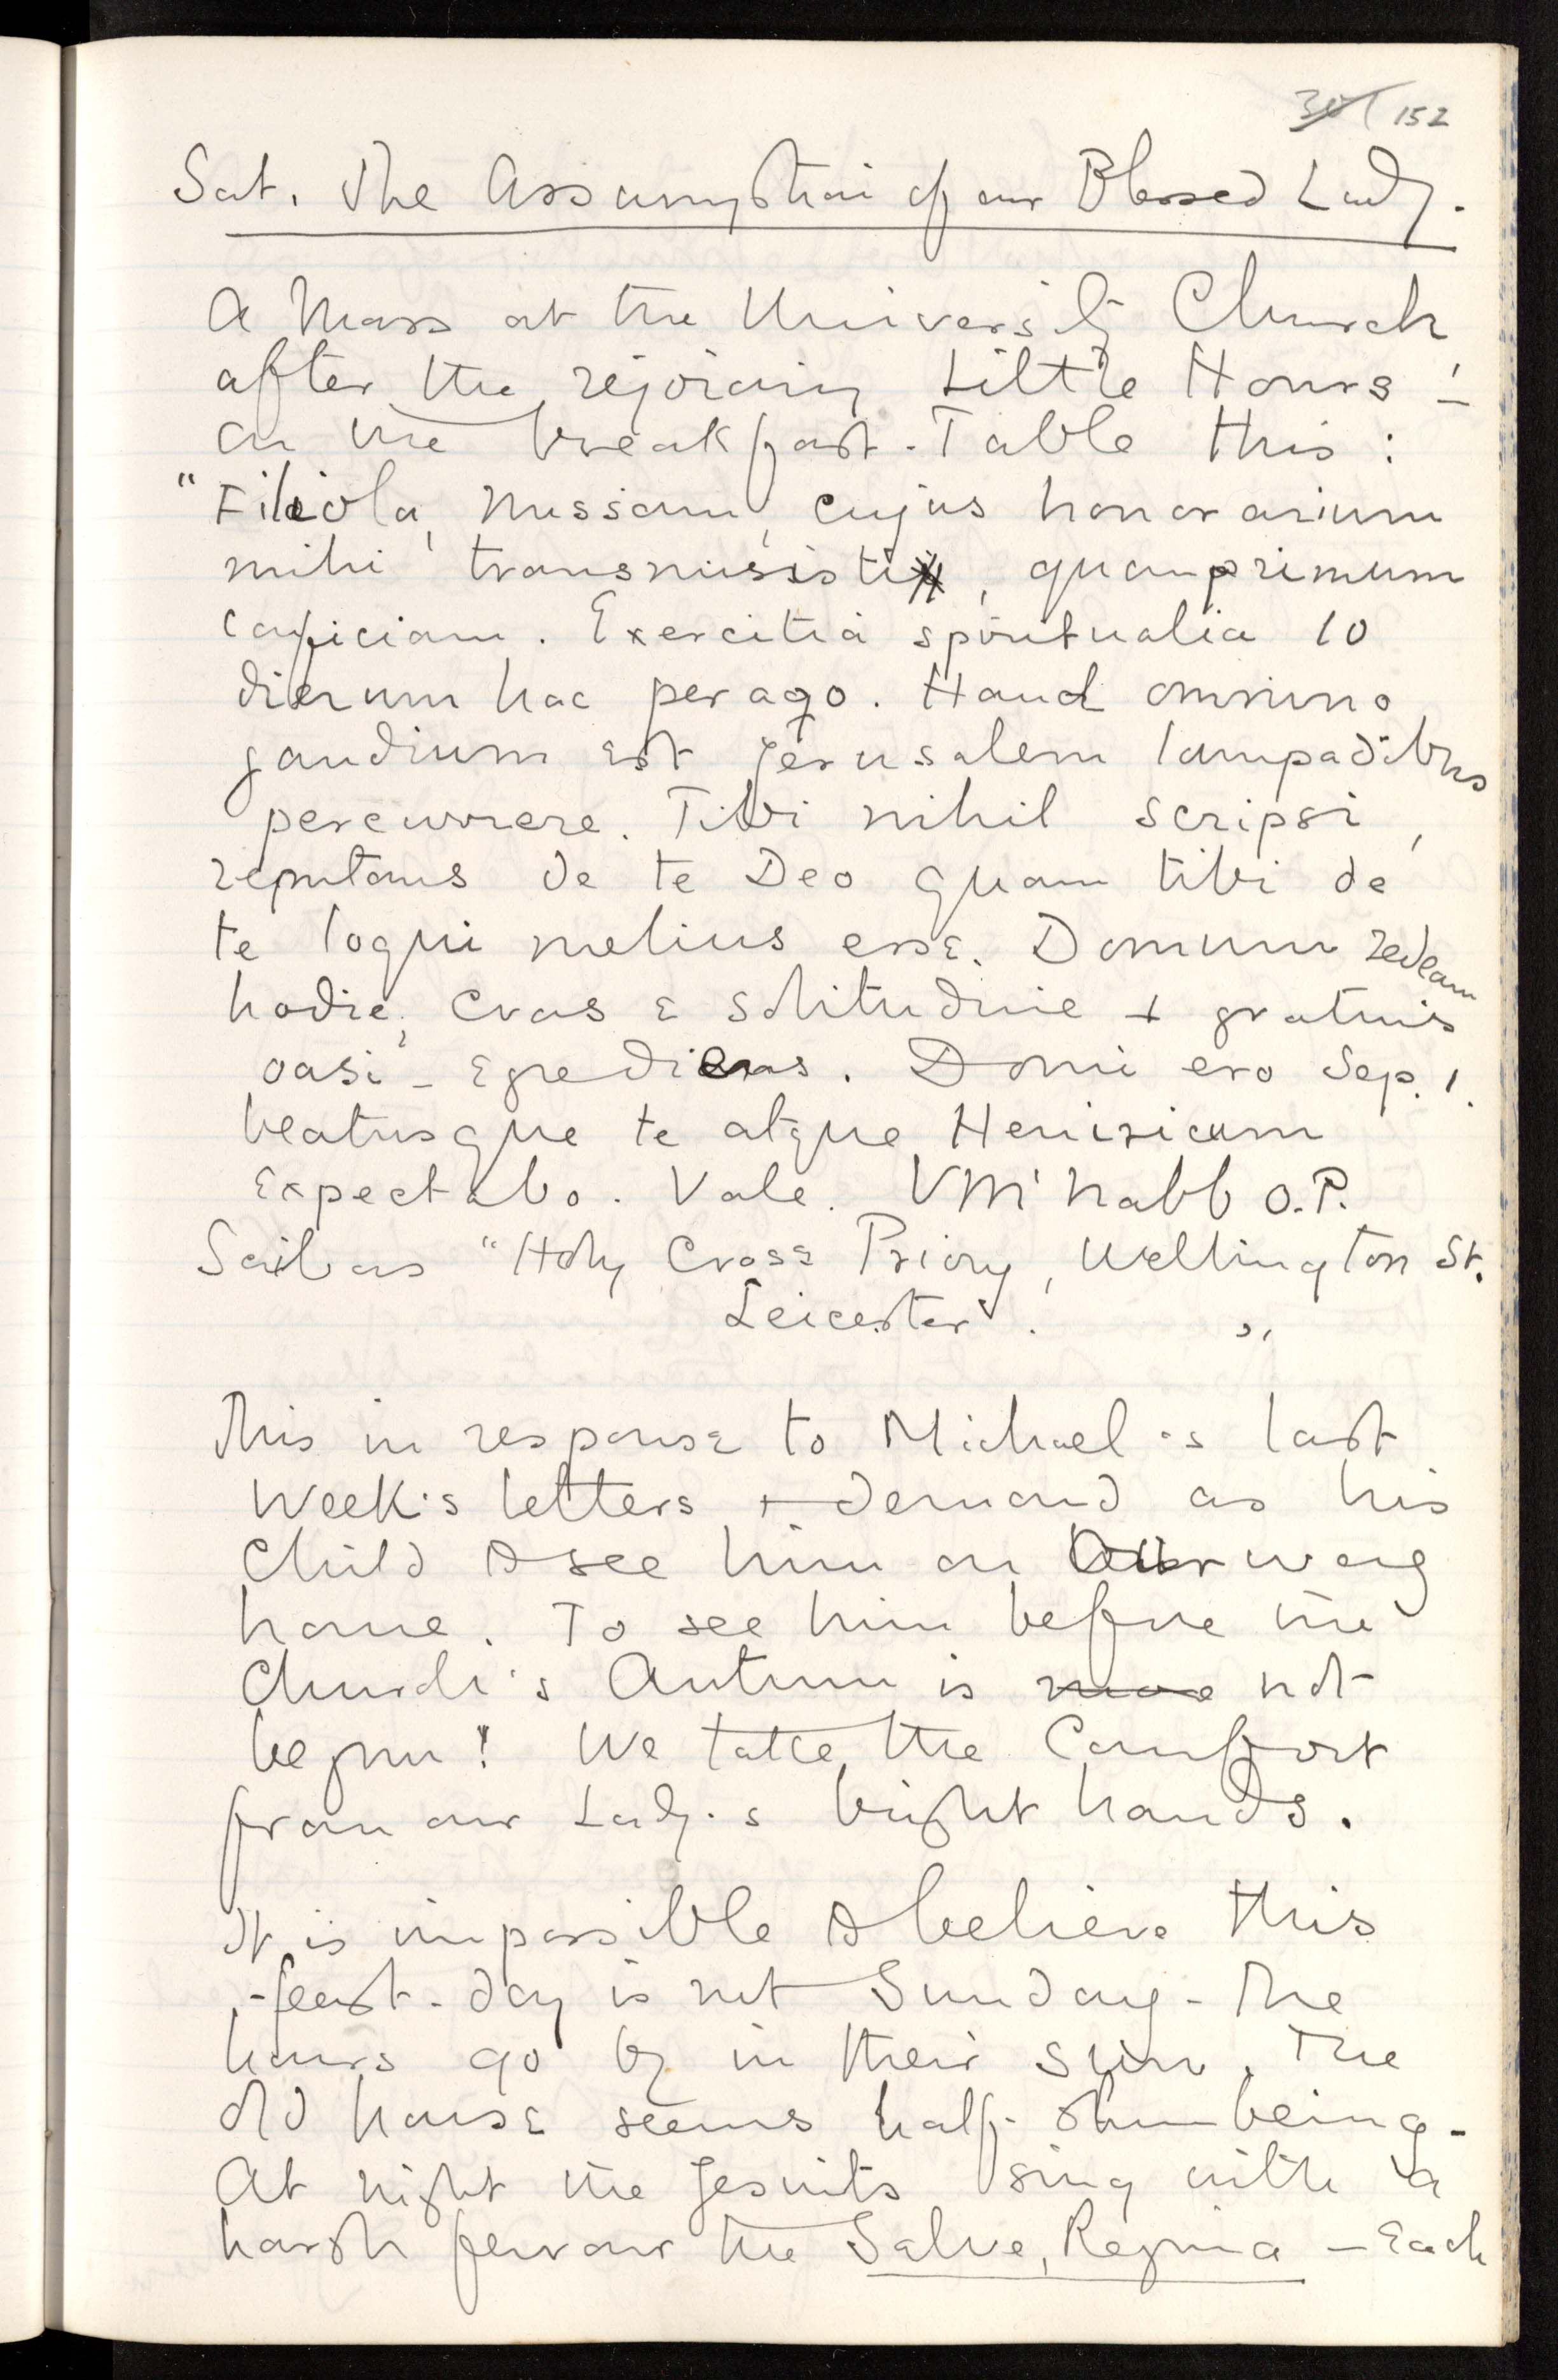 301 152
Sat. The Assumption of our Blessed Lady.
A Mass at the University Church
after the rejoicing Little Hours –
on the breakfast-Table this:
"Filiola, Missam, cujus honorarium
mihi transmisisti, quamprimum
conficiam. Exercitia spiritualia 10
dierum hac perago. Haud omnino
gaudium est Jerusalem lampadibus
percurrere. Tibi nihil scripsi,
reputans de te Deo quam tibi de
te loqui melius esse. Domum redeam
hodie, cras e solitudine + gratuis
oasi – egrediens. Domi ero Sep. 1.
beatusque te atque Henricum
Expectabo. Vale. VM'Nabb O.P.
Scribas "Holy Cross Priory, Wellington St.
Leicester". "
This in response to Michael's last
Week's letters + demand as his
Child to see him on Our way
home. To see him before the
Church's Autumn is more not
begun! We take the Comfort
from our Lady's bright hands.
It is impossible to believe this
feast-day is not Sunday – The
hours go by in their sun, The
old house seems half-slumbering –
At night the Jesuits sing with a
harsh fervour the Salve, Regina – Each